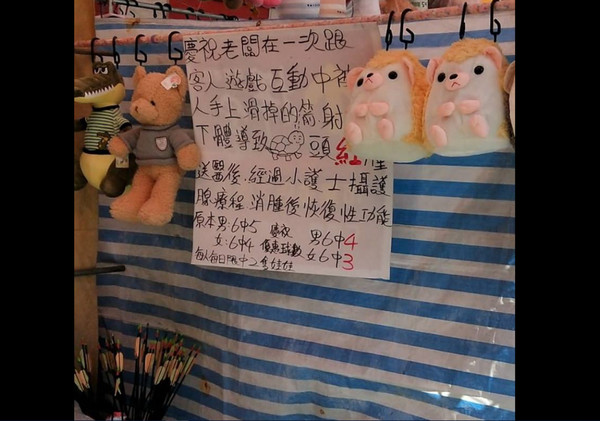 慶祝老闆在一次跟
客人遊戲互動中
人手上滑掉的箭.射
下體導致頭紅腫
送醫後.經過小護士攝護
腺療程.消腫後.恢復性功能
原本男:6中5 慶祝 男6中4
女:6中4 優惠球數 女6中3
每人每日限中2隻娃娃